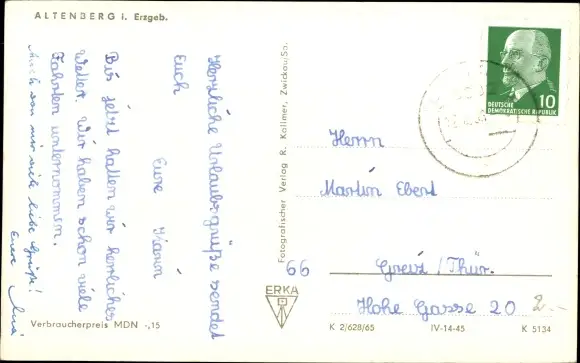 ALTENBERG i. Erzgeb.
Herzliche Urlaubsgrüße sendet
Euch
Eure Karin
Bis jetzt hatten wir herrliches
Wetter. Wir haben schon viele
Fahrten unternommen.
Auch von mir viele liebe Grüße!
Eure
Verbraucherpreis MDN -,15
Fotografischer Verlag R. Kallmer, Zwickau/Sa.
ERKA
DEUTSCHE
DEMOKRATISCHE REPUBLIK
10
Herrn
Martin Ebert
66 Greiz/Thür.
Hohe Gasse 20
2.-
K 2/628/65 IV-14-45 K 5134